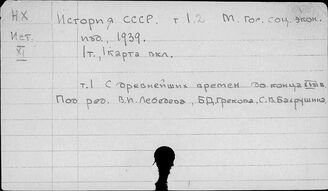 НХ История СССР. т 1.2 М. Гос. соц. экон.
Ист. изд., 1939.
XI 1т., 1 карта вкл.
т.1 С древнейших времен до конца XVIII в.
Под ред. В.И. Лебедева, Б.Д. Грекова, С.В. Бахрушина